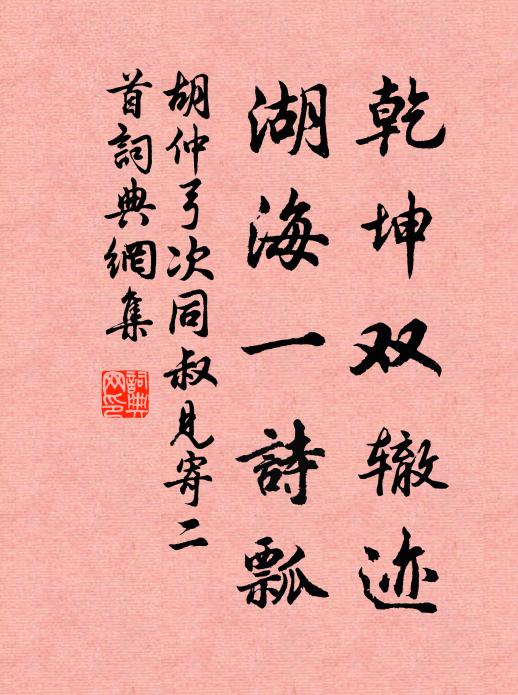 乾坤双辙迹
湖海一詩瓢
胡仲弓次同叔見寄二
首詞典網集
詞典
网印